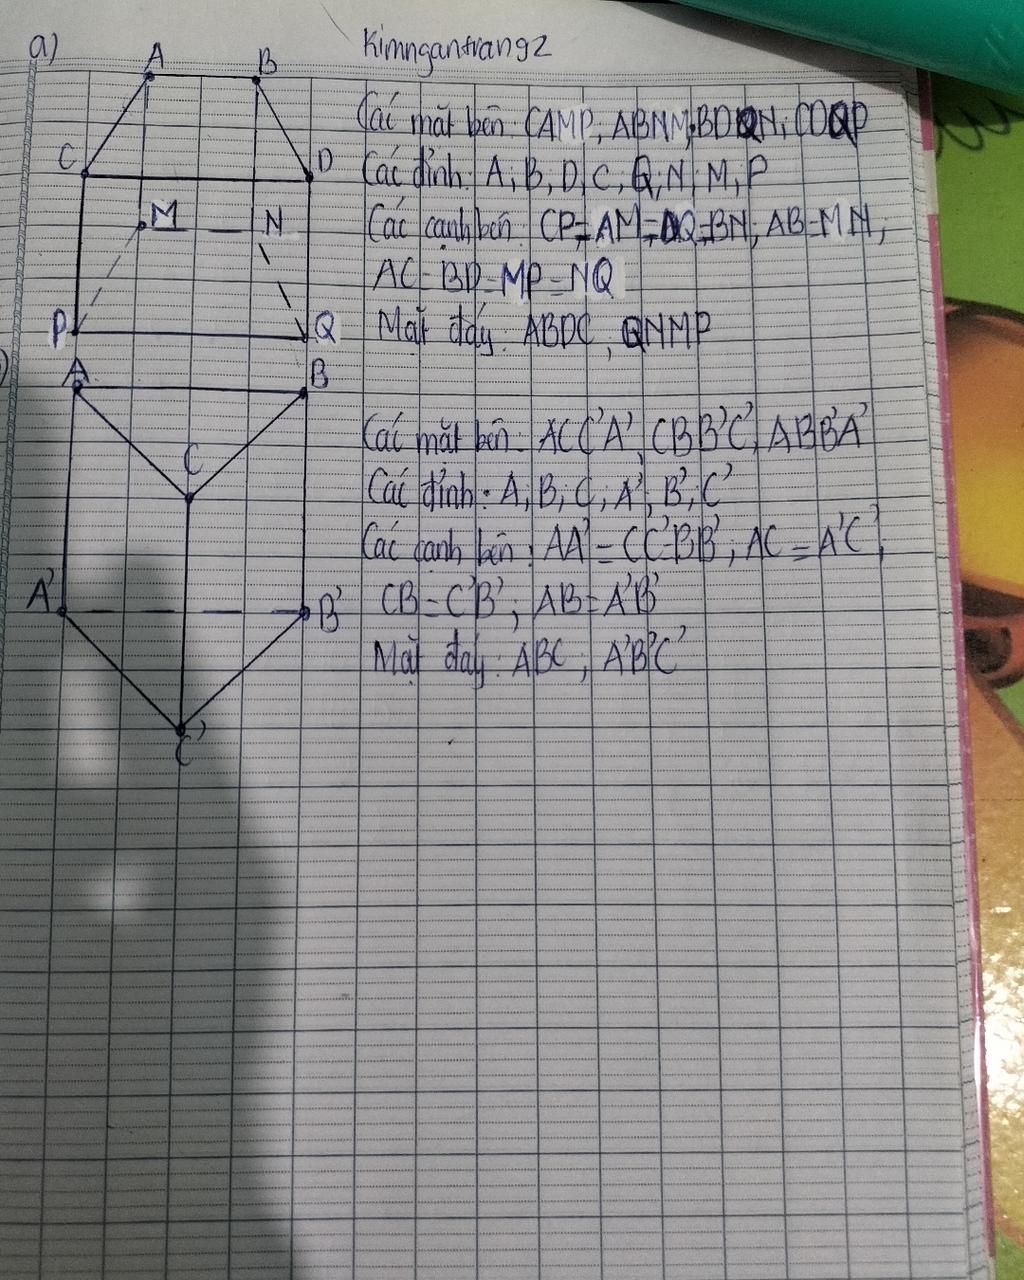 a)
Kimngantrang2
A B
Các mặt bên: CAMP, ABNM, BDQN, CDQP
C D
Các đỉnh: A, B, D, C, Q, N, M, P
M N
Các cạnh bên: CP=AM=DQ=BN; AB=MN;
AC=BD=MP=NQ
P Q
Mặt đáy: ABDC, QNMP
A B
Các mặt bên: ACC'A', CBB'C', ABB'A'
C
Các đỉnh: A, B, C, A', B', C'
Các cạnh bên: AA'=CC'=BB'; AC=A'C';
A' B'
CB=C'B'; AB=A'B'
Mặt đáy: ABC; A'B'C'
C'